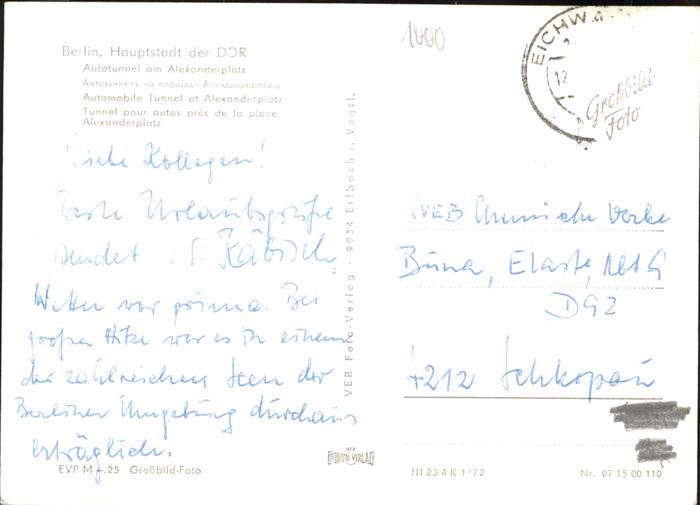 Berlin, Hauptstadt der DDR
Autotunnel am Alexanderplatz
Автотуннель на площади Александерплац
Automobile Tunnel at Alexanderplatz
Tunnel pour autos près de la place
Alexanderplatz
1000
EICHW
12
Großbild-
Foto
Liebe Kollegen!
Beste Urlaubsgrüße
sendet Käbisch.
Wetter war prima. Bei
großer Hitze war es in einem
der zahlreichen Seen der
Berliner Umgebung durchaus
erträglich.
EVP M -.25 Großbild-Foto
VEB Foto-Verlag · 9934 Erlbach i. Vogtl.
VEB Chemische Werke
Buna, Elaste,
4212 Schkopau
FOTO VERLAG
III 23 4 K 1/72
Nr. 07 15 00 110